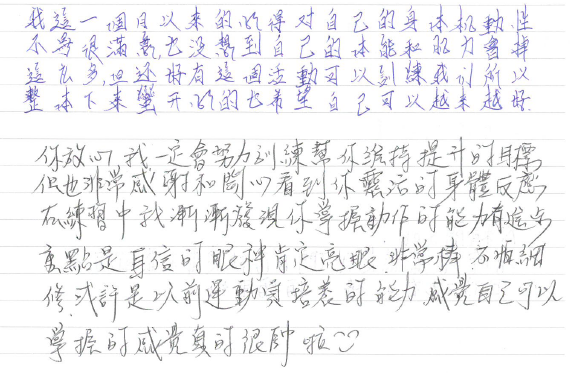 我這一個月以來的心得對自己的身体机動性
不是很滿意,也没想到自己的体能和肌力會掉
這広多,但还好有這個活動可以訓練我们所以
整体下来蠻开心的也希望自己可以越来越好.
你放心,我一定會努力訓練幫你維持提升的目標
但也非常感謝和開心看到你靈活的身體反應
在練習中我漸漸發現你掌握動作的能力有進步
重點是自信的眼神肯定亮眼.非常棒 不順細
修,或許是以前運動員培養的能力.感覺自己可以
掌握的感覺真的很帥啦